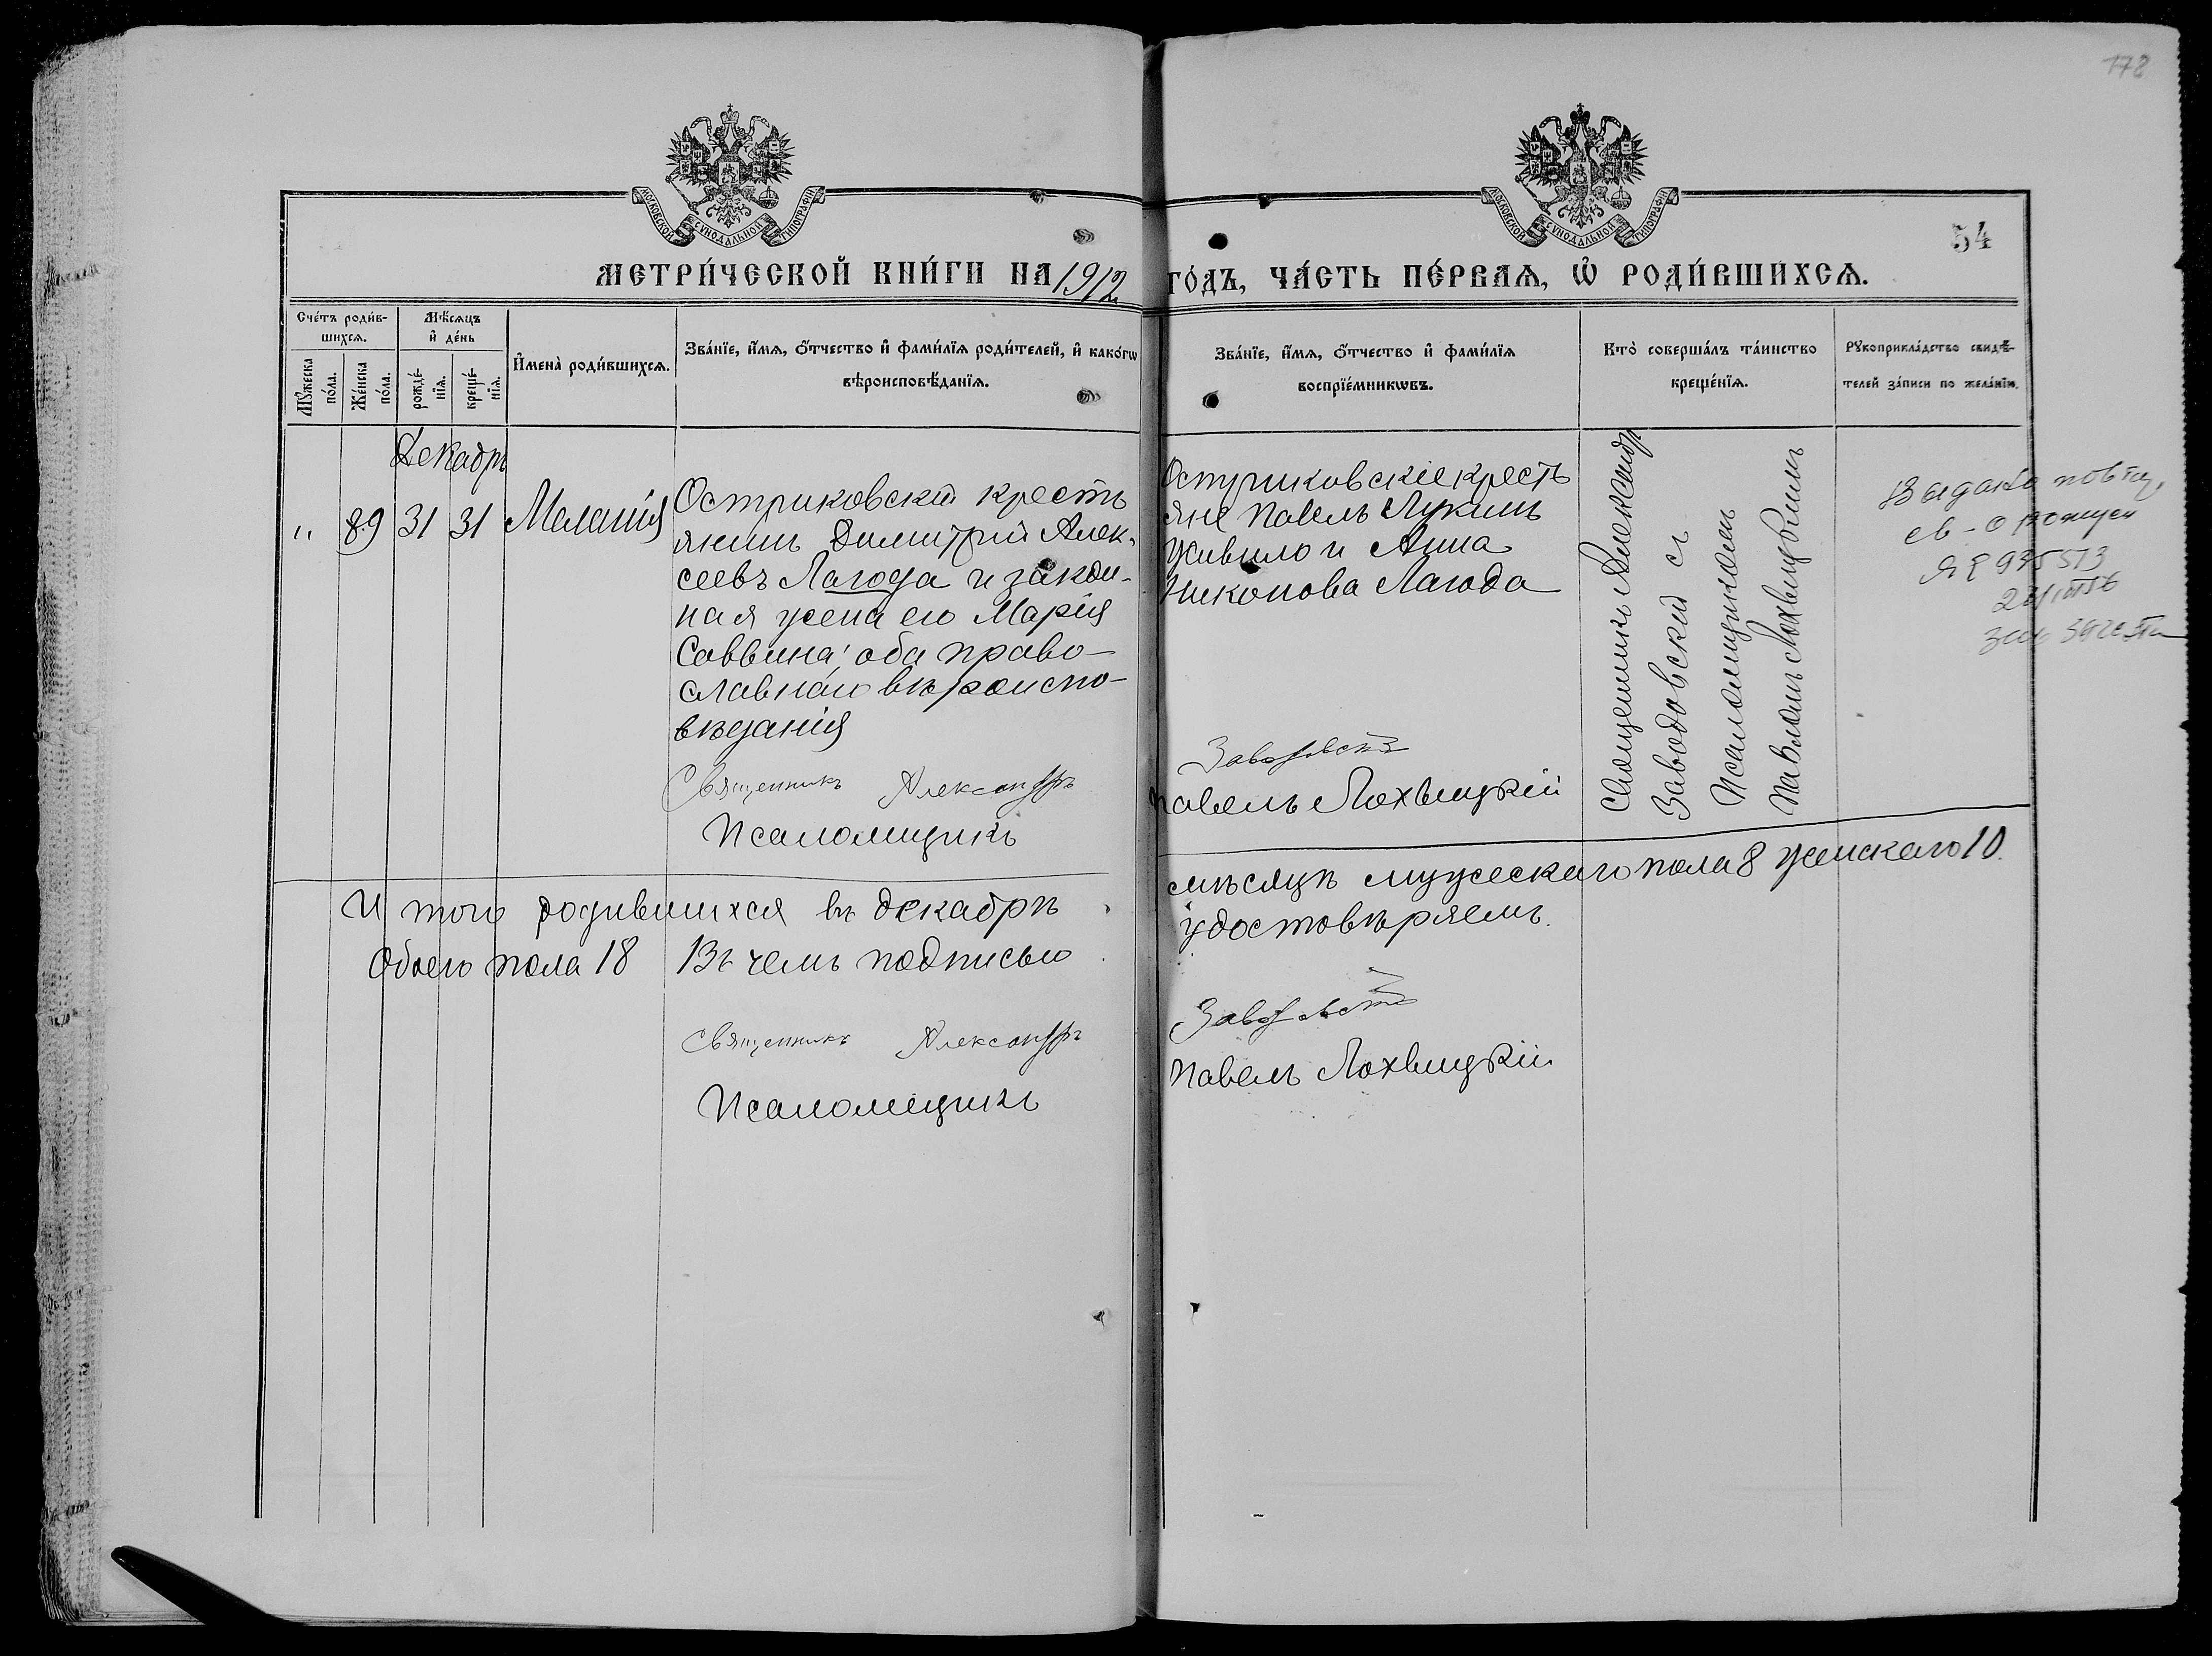 178
МОСКОВСКОЙ СУНОДАЛЬНОЙ ТИПОГРАФІИ
МОСКОВСКОЙ СУНОДАЛЬНОЙ ТИПОГРАФІИ
54
МЕТРИ́ЧЕСКОЙ КНИ́ГИ НА 1912 ГО́ДЪ, ЧА́СТЬ ПЕ́РВАѦ, Ѽ РОДИ́ВШИХСѦ.
Сче́тъ роди́в-
шихсѧ.
Мꙋ́жеска
по́ла.
Же́нска
по́ла.
Мѣ́сѧцъ
и҆ де́нь
рожде́-
нїѧ.
креще́-
нїѧ.
И҆мена̀ роди́вшихсѧ.
Зва́нїе, и҆́мѧ, ѻ҆́тчество и҆ фами́лїѧ роди́телей, и҆ како́гѡ
вѣроисповѣ́данїѧ.
Зва́нїе, и҆́мѧ, ѻ҆́тчество и҆ фами́лїѧ
воспрїе́мникѡвъ.
Кто̀ соверша́лъ та́инство
креще́нїѧ.
Рꙋкоприкла́дство свидѣ́-
телей за́писи по жела́нїю.
Декабрь
„ 89 31 31 Меланія
Остриковскій кресть
янинъ Димитрій Алек-
сеевъ Лагода и закон-
ная жена его Марія
Саввина; оба право-
славнаго вѣроиспо-
вѣданія
Священникъ Александръ
Псаломщикъ
Остриковскіе кресть
яне Павелъ Лукинъ
Живило и Анна
Никонова Лагода
Заводовскій
Павелъ Лохвицкій
Священникъ Александръ
Заводовскій съ
Псаломщикомъ
Павломъ Лохвицкимъ
Выдано повт.
св-о о рожден
ЯЕ 935513
Итого родившихся въ декабрѣ мѣсяцѣ мужескаго пола 8 женскаго 10.
Обоего пола 18 Въ чемъ подписью удостовѣряемъ.
Священникъ Александръ Заводовскій
Псаломщикъ Павелъ Лохвицкій